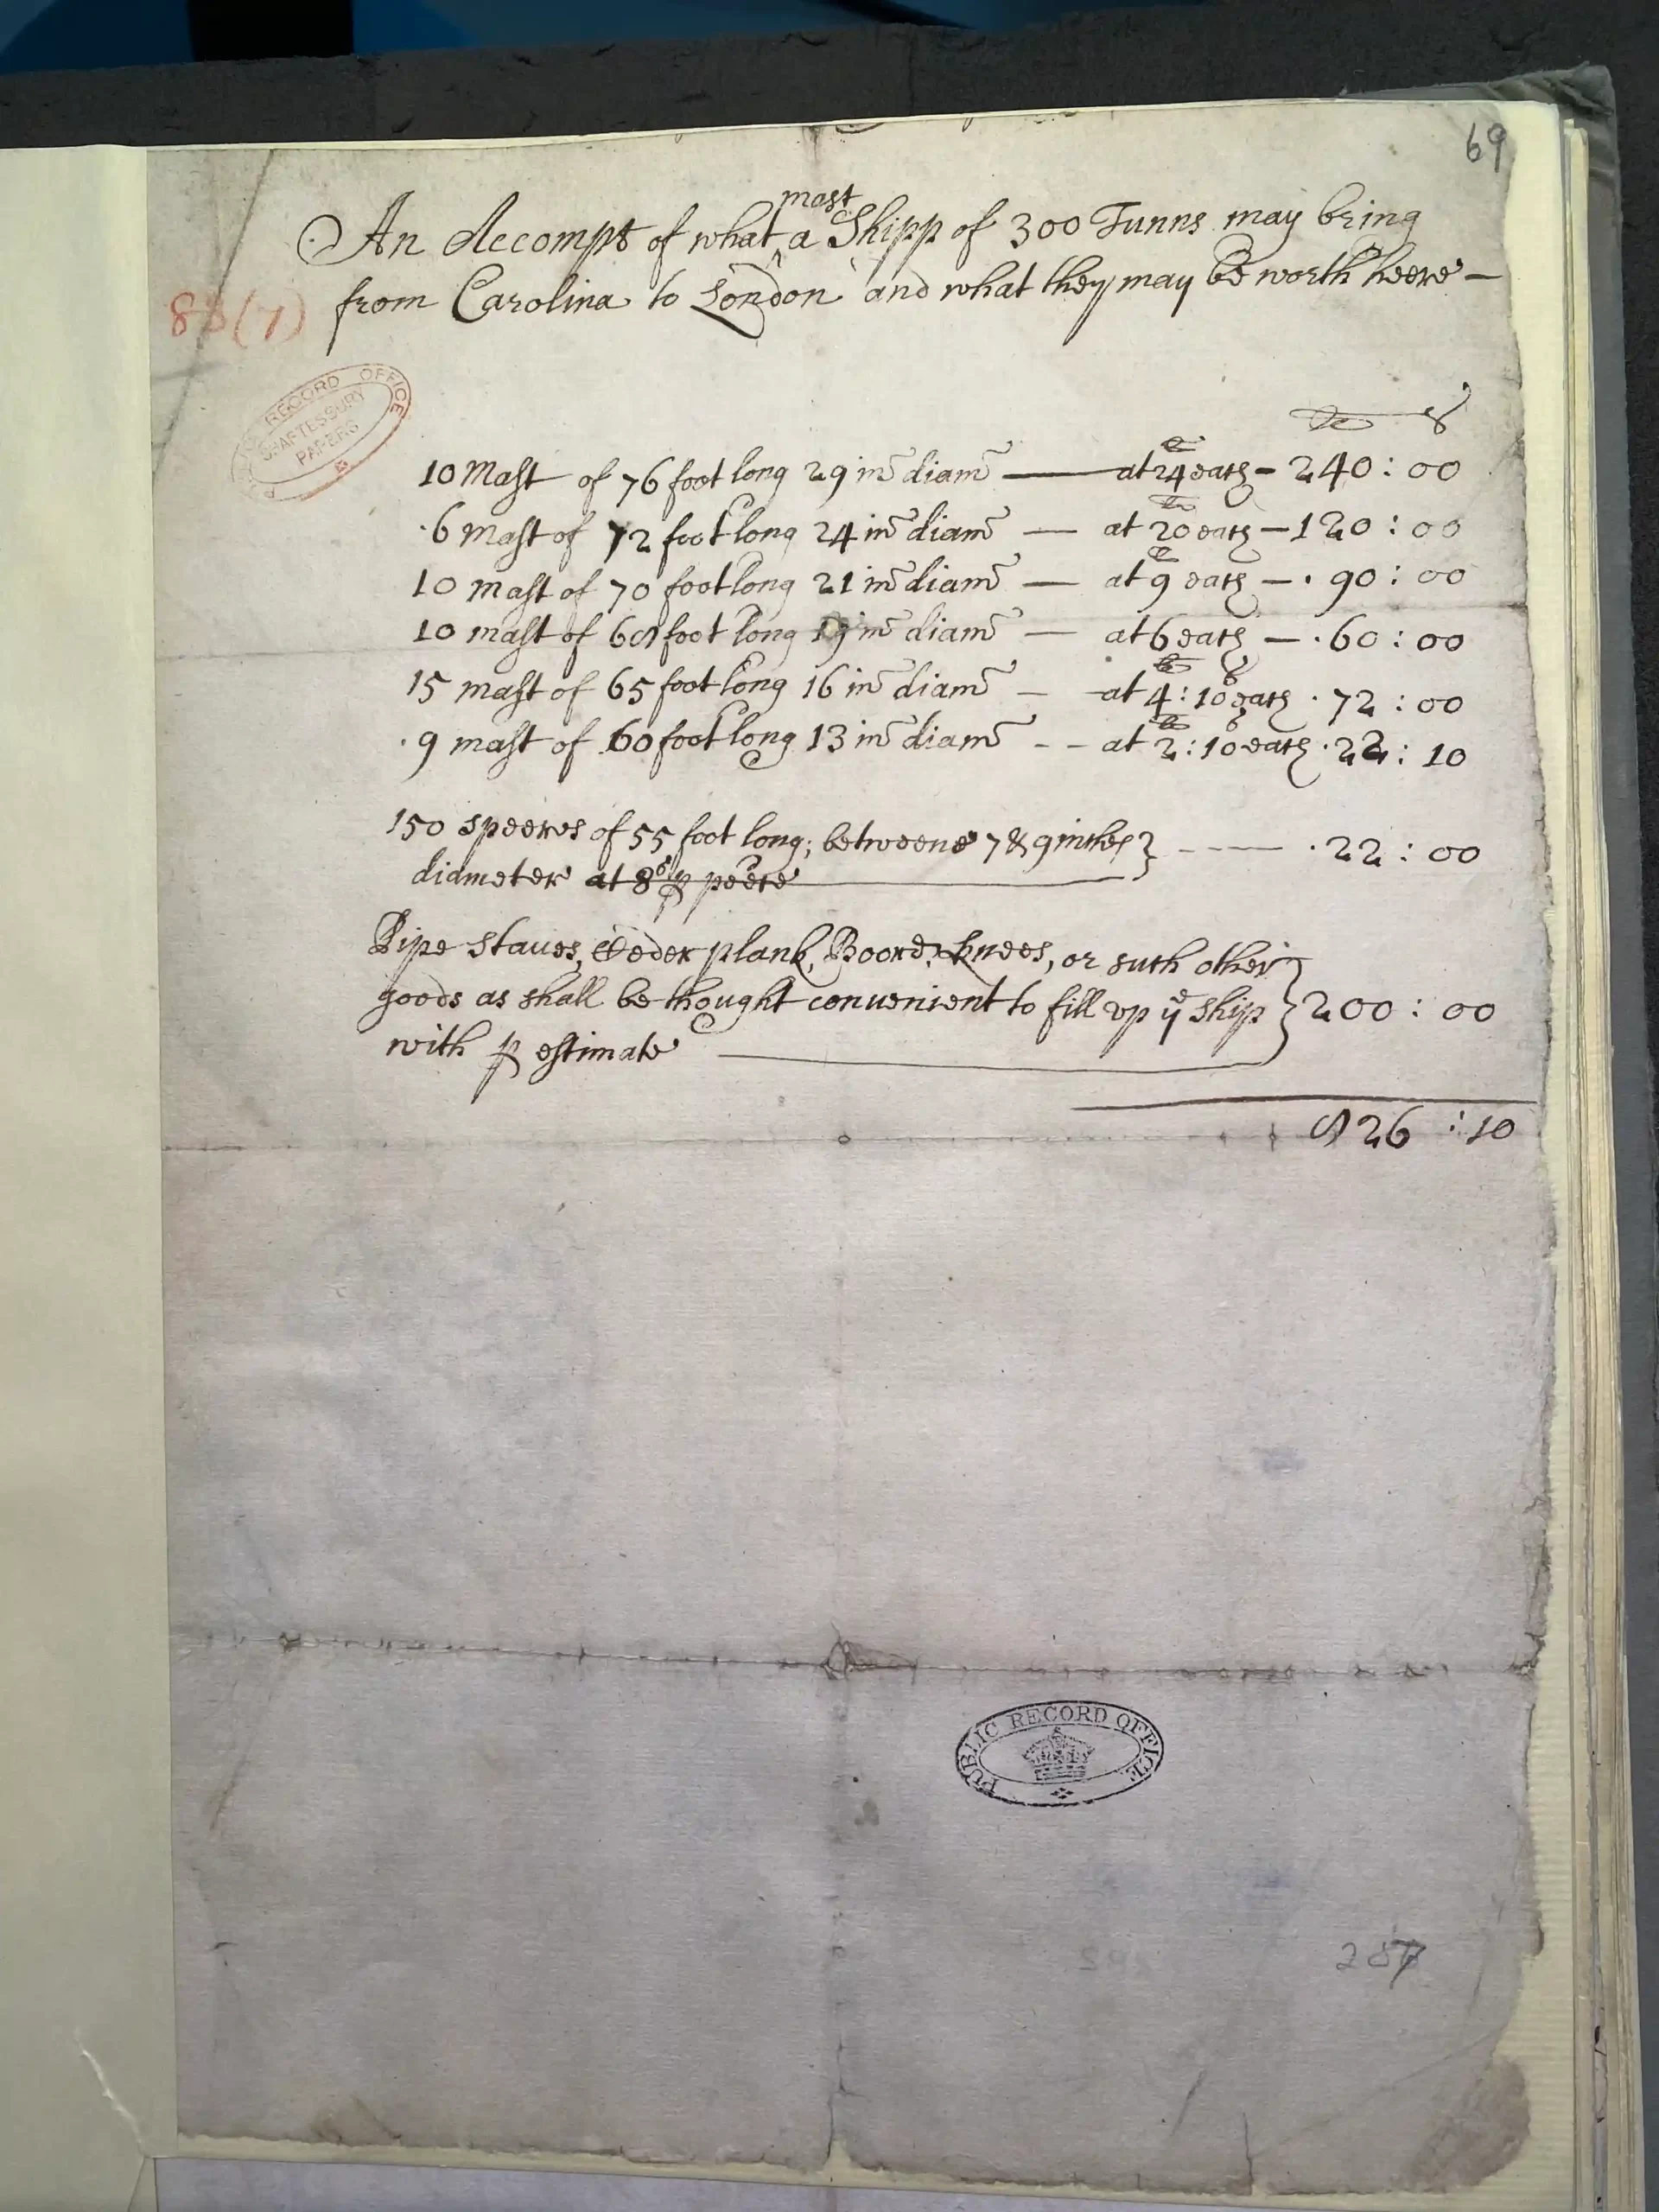 69
An Accompt of what mast a Shipp of 300 Tunns may bring
from Carolina to London and what they may be worth heere —
88(7)
PUBLIC RECORD OFFICE
SHAFTESSURY
PAPERS
li s
10 Mast of 76 foot long 29 in diam — at 24 li each – 240 : 00
6 mast of 72 foot long 24 in diam — at 20 li each – 120 : 00
10 mast of 70 foot long 21 in diam — at 9 li each – . 90 : 00
10 mast of 68 foot long 19 in diam — at 6 each – . 60 : 00
15 mast of 65 foot long 16 in diam – at 4 li : 10 s each . 72 : 00
. 9 mast of 60 foot long 13 in diam - - at 2 li : 10 s each . 22 : 10
150 speeres of 55 foot long; betweene 7 & 9 inches } - - - . 22 : 00
diameter at 8 p peece
Pipe staues, Ceder plank, Boords, knees, or such other
goods as shall be thought conuenient to fill vp ye ship } 200 : 00
with p estimate
826 : 10
PUBLIC RECORD OFFICE
287